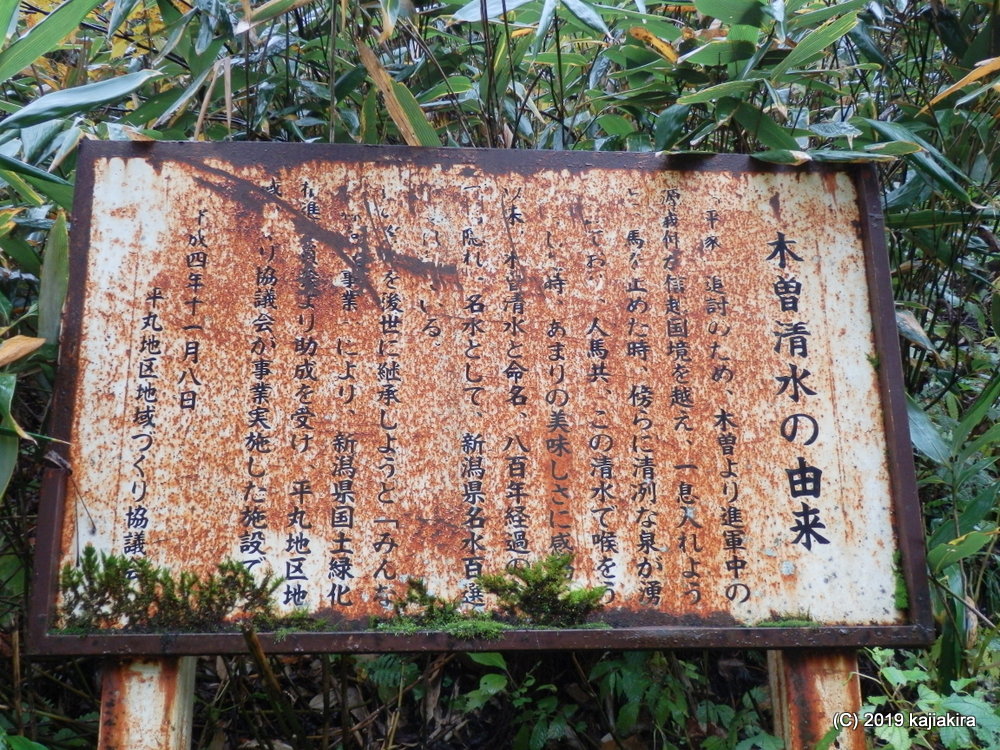 木曽清水の由来
、平家 追討のため、木曽より進軍中の
信越国境を越え、一息入れよう
と、馬を止めた時、傍らに清冽な泉が湧
ており、人馬共、この清水で喉をう
し 時、あまりの美味しさに感
木曽清水と命名、八百年経過の
隠れ名水として、新潟県名水百選
いる。
を後世に継承しようと「みんな
事業 により、新潟県国土緑化
より助成を受け、平丸地区地
り協議会が事業実施した施設で
成四年十一月八日
平丸地区地域づくり協議会
(C) 2019 kajiakira